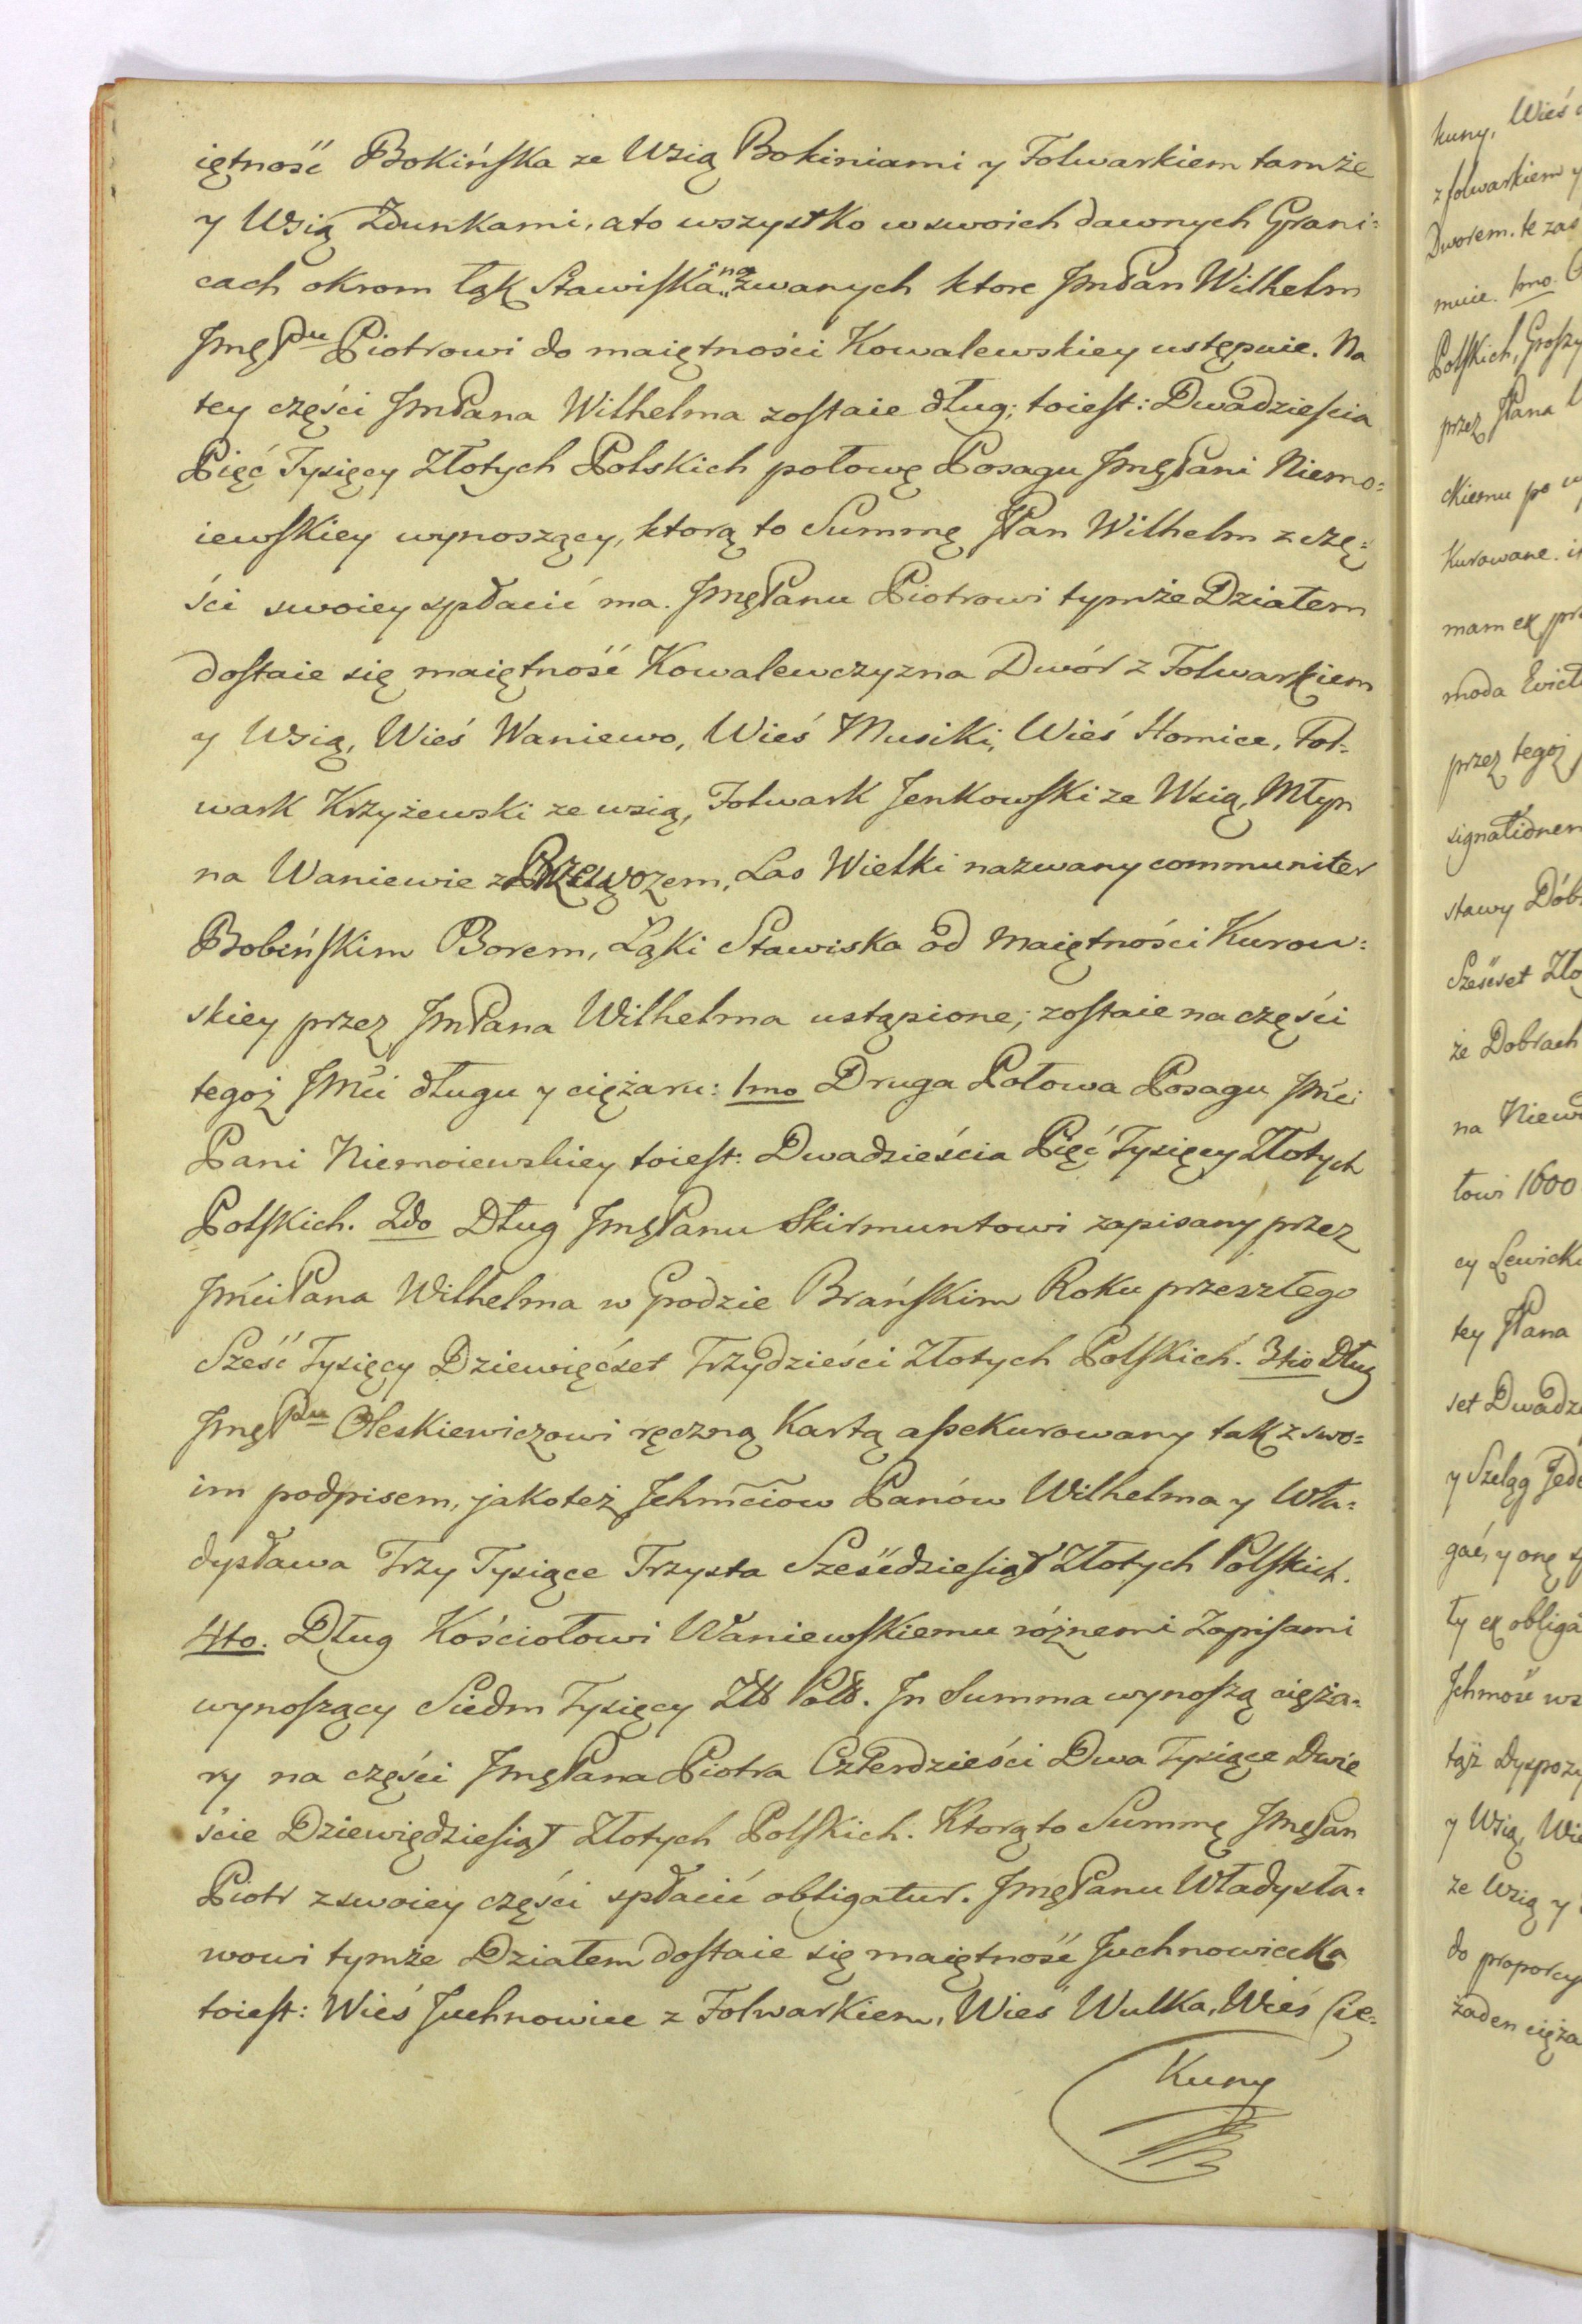 iętność Bokińska ze Wsią Bokiniami y Folwarkiem tamże
y Wsią Zdunkami, a to wszystko w swoich dawnych Grani=
cach okrom łąk Stawiska nazwanych ktore JmPan Wilhelm
JmęPu Piotrowi do maiętności Kowalewskiey ustępuie. Na
tey części JmPana Wilhelma zostaie dług; toiest: Dwadzieścia
Pięć Tysięcy Złotych Polskich połowę Posagu JmęPani Niemo=
iewskiey wynoszący, ktorą to Summę JPan Wilhelm z czę=
ści swoiey spłacić ma. JmęPanu Piotrowi tymże Działem
dostaie się maiętność Kowalewczyzna Dwór z Folwarkiem
y Wsią, Wieś Waniewo, Wieś Musiki, Wieś Słomice, Fol=
wark Krzyżewski ze wsią, Folwark Jenkowski ze Wsią, Młyn
na Waniewie z Przewozem, Las Wielki nazwany communiter
Bobińskim Borem, Łąki Stawiska od maiętności Kurow=
skiey przez JmPana Wilhelma ustąpione; zostaie na części
tegoż JMci długu y ciężaru: 1mo Druga Połowa Posagu Jmci
Pani Niemoiewskiey toiest: Dwadzieścia Pięć Tysięcy Złotych
Polskich. 2do Dług JmęPanu Skirmuntowi zapisany przez
JmciPana Wilhelma w Grodzie Brańskim Roku przeszłego
Sześć Tysięcy Dziewięćset Trzydzieści Złotych Polskich. 3tio Dług
JmęPu Oleskiewiczowi ręczną Kartą assekurowany tak z swo=
im podpisem, jakoteż Jchmciow Panów Wilhelma y Wła=
dysława Trzy Tysiące Trzysta Sześćdziesiąt Złotych Polskich.
4to. Dług Kościołowi Waniewskiemu różnemi Zapisami
wynoszący Siedm Tysięcy Złł Poll. Jn Summa wynoszą cięża=
ry na części JmęPana Piotra Czterdzieści Dwa Tysiące Dwie
ście Dziewiędziesiąt Złotych Polskich. Ktorą to Summę JmęPan
Piotr z swoiey części spłacić obligatur. JmęPanu Władysła=
wowi tymże Działem dostaie się maiętność Juchnowiecka
toiest: Wieś Juchnowiec z Folwarkiem, Wieś Wulka, Wieś Sie=
Kuny
kuny, Wieś
z folwarkiem y
Dworem. te zaś
muie. 1mo.
Polskich, Groszy
przez JPana
ckiemu po
Kurowane.
mam ex
moda Evict
przez tegoż
signationem
stawy Dób
Sześćset Zło
że Dobrach
na Niewo
łowi 1600
cy Lewick
tey JPana
set Dwadzi
y Szeląg Jede
gać, y onę
ty ex obliga
Jchmość
tąż dyspozy
y Wsią, Wie
ze Wsią y
do proporcy
żaden cięża